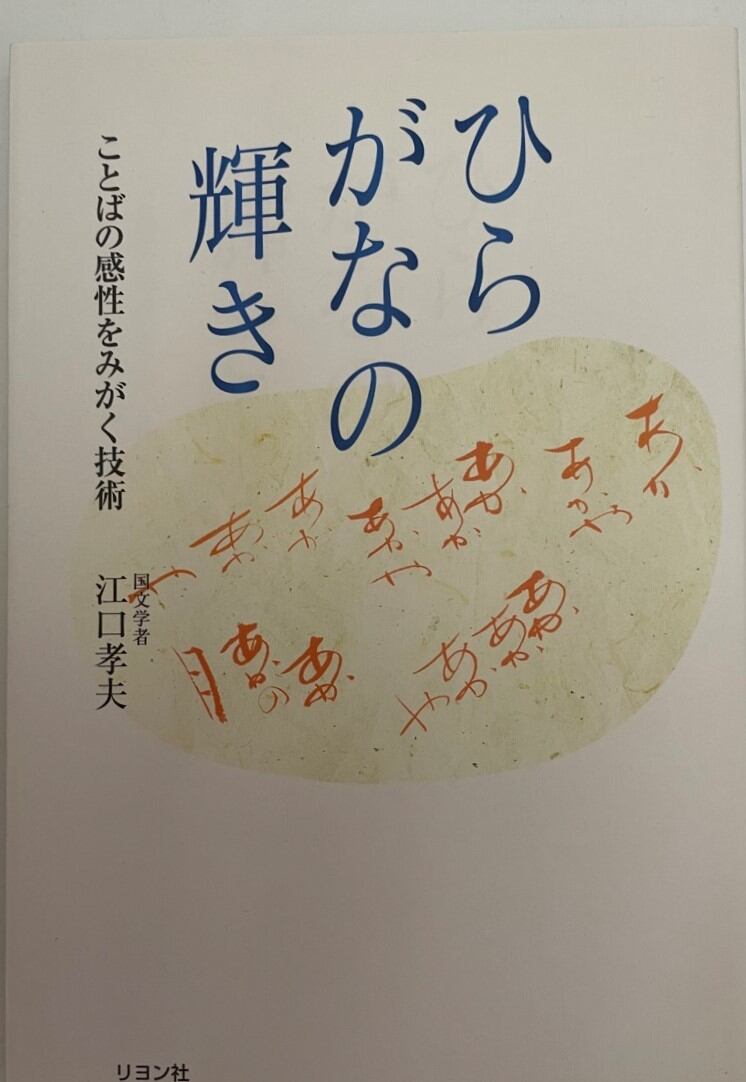 ひら
がなの
輝き
ことばの感性をみがく技術
国文学者
江口孝夫
あかあかや
あかあかあかや
あかあかや
あかあかあかや
あかあかの月
リヨン社